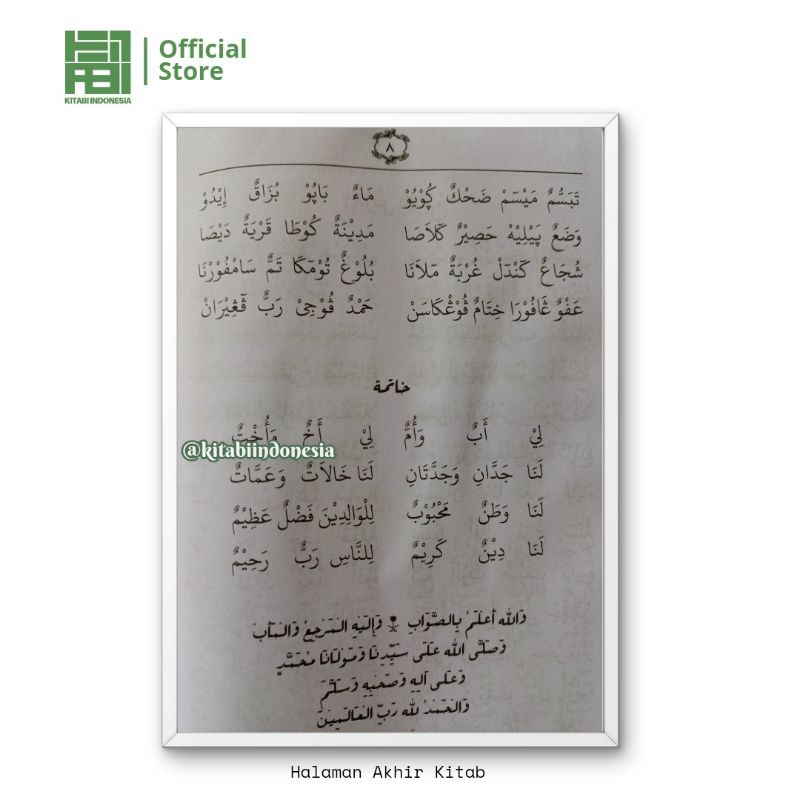 KITABI INDONESIA
Official
Store
٨
تَبَسُّمٌ مَيْسَمْ ضَحْكٌ كُوْيُوْ مَاءٌ بَاپُوْ بُزَاقٌ إِيْدُوْ
وَضَعٌ پَيْلِيْهْ حَصِيْرٌ كَلَاصَا مَدِيْنَةٌ كُوْطَا قَرْيَةٌ دَيْصَا
شُجَاعٌ كَنْدَلْ غُرْبَةٌ مَلَانَا بُلُوْغٌ تُوْمَكَا تَمَّ سَامْفُوْرْنَا
عَفْوٌ غَافُوْرَا خِتَامٌ ڤُوْڠْكَاسَنْ حَمْدٌ ڤُوْجِيْ رَبٌّ ڤَڠِيْرَانْ
خاتمة
لِيْ أَبٌ وَأُمٌّ لِيْ أَخٌ وَأُخْتٌ
@kitabiindonesia
لَنَا جَدَّانِ وَجَدَّتَانِ لَنَا خَالَاتٌ وَعَمَّاتٌ
لَنَا وَطَنٌ مَحْبُوْبٌ لِلْوَالِدِيْنَ فَضْلٌ عَظِيْمٌ
لَنَا دِيْنٌ كَرِيْمٌ لِلنَّاسِ رَبٌّ رَحِيْمٌ
وَالله أَعْلَمُ بِالصَّوَابِ وَإِلَيْهِ الْمَرْجِعُ وَالْمَآبُ
وَصَلَّى الله عَلَى سَيِّدِنَا وَمَوْلَانَا مُحَمَّدٍ
وَعَلَى آلِهِ وَصَحْبِهِ وَسَلَّمَ
وَالْحَمْدُ لله رَبِّ الْعَالَمِيْنَ
Halaman Akhir Kitab